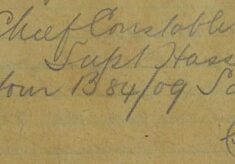 Chief Constable
Supt Hass
Your B 84/09